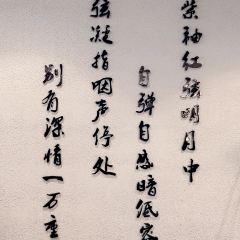 紫袖红弦明月中
自弹自感暗低容
弦凝指咽声停处
别有深情一万重